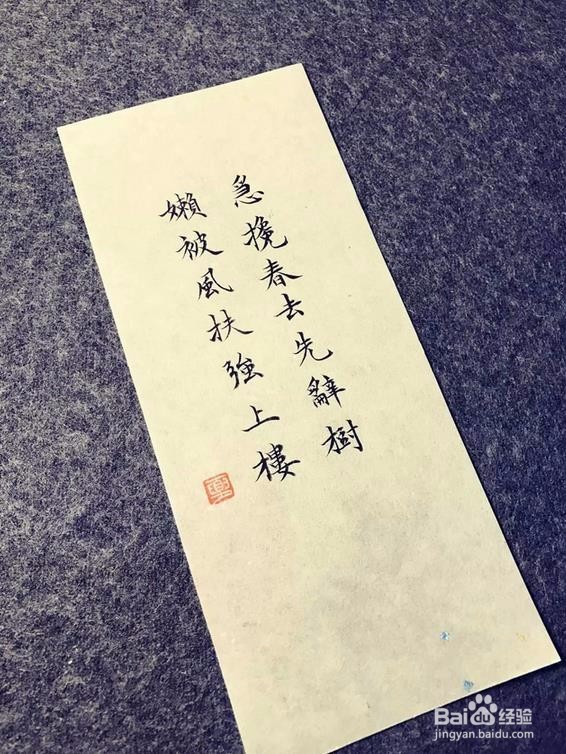 急挽春去先辭樹
嬾被風扶強上樓
Bai du 经验
jingyan.baidu.com